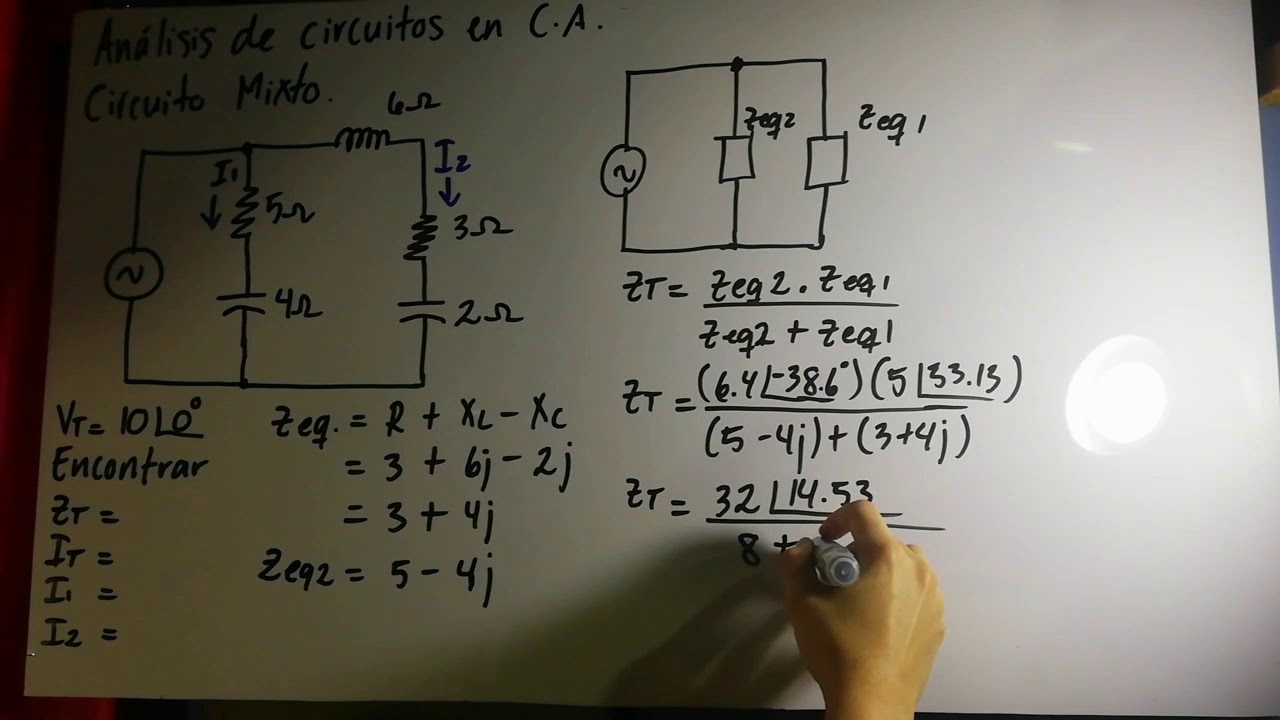 Análisis de circuitos en C.A.
Circuito Mixto.
6Ω
I1
5Ω
4Ω
I2
3Ω
2Ω
VT = 10∠0°
Encontrar
ZT =
IT =
I1 =
I2 =
Zeq. = R + XL - XC
= 3 + 6j - 2j
= 3 + 4j
Zeq2 = 5 - 4j
Zeq2
Zeq1
ZT = Zeq2 . Zeq1
Zeq2 + Zeq1
ZT = (6.4∠-38.6°)(5∠33.13)
(5 - 4j) + (3 + 4j)
ZT = 32∠14.53
8 +